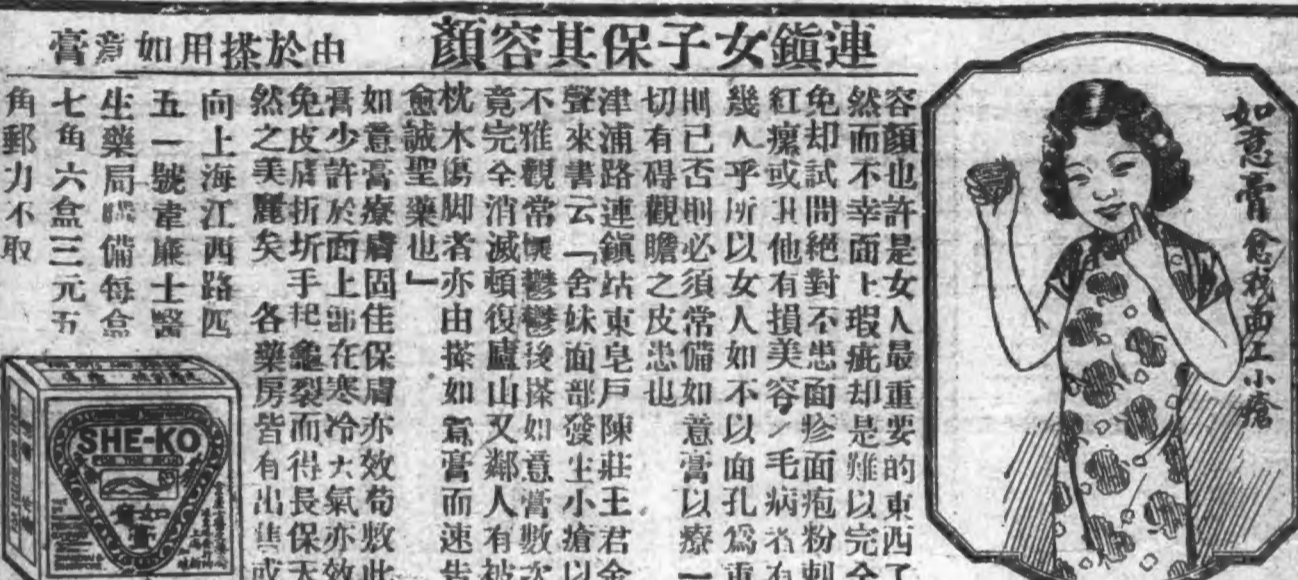 連鎮女子保其容顏
由於搽用如意膏
如意膏愈我面上小瘡
容顏也許是女人最重要的東西了
然而不幸面上瑕疵却是難以完全
免却試問絕對不患面疹面疱粉刺
紅瘰或其他有損美容之毛病者有
幾人乎所以女人如不以面孔爲重
則已否則必須常備如意膏以療一
切有碍觀瞻之皮患也
津浦路連鎮站東皂戶陳莊王君金
聲來書云「舍妹面部發生小瘡以
不雅觀常懷鬱鬱後搽如意膏數次
竟完全消滅頓復廬山又鄰人有被
枕木傷脚者亦由搽如意膏而速告
愈誠聖藥也」
如意膏療膚固佳保膚亦效苟敷此
膏少許於面上部在寒冷大氣亦效
免皮膚折坼手皰龜裂而得長保天
然之美麗矣 各藥房皆有出售或
向上海江西路匹
五一號韋廉士醫
生藥局購備每盒
七角六盒三元五
角郵力不取
SHE-KO
如意膏